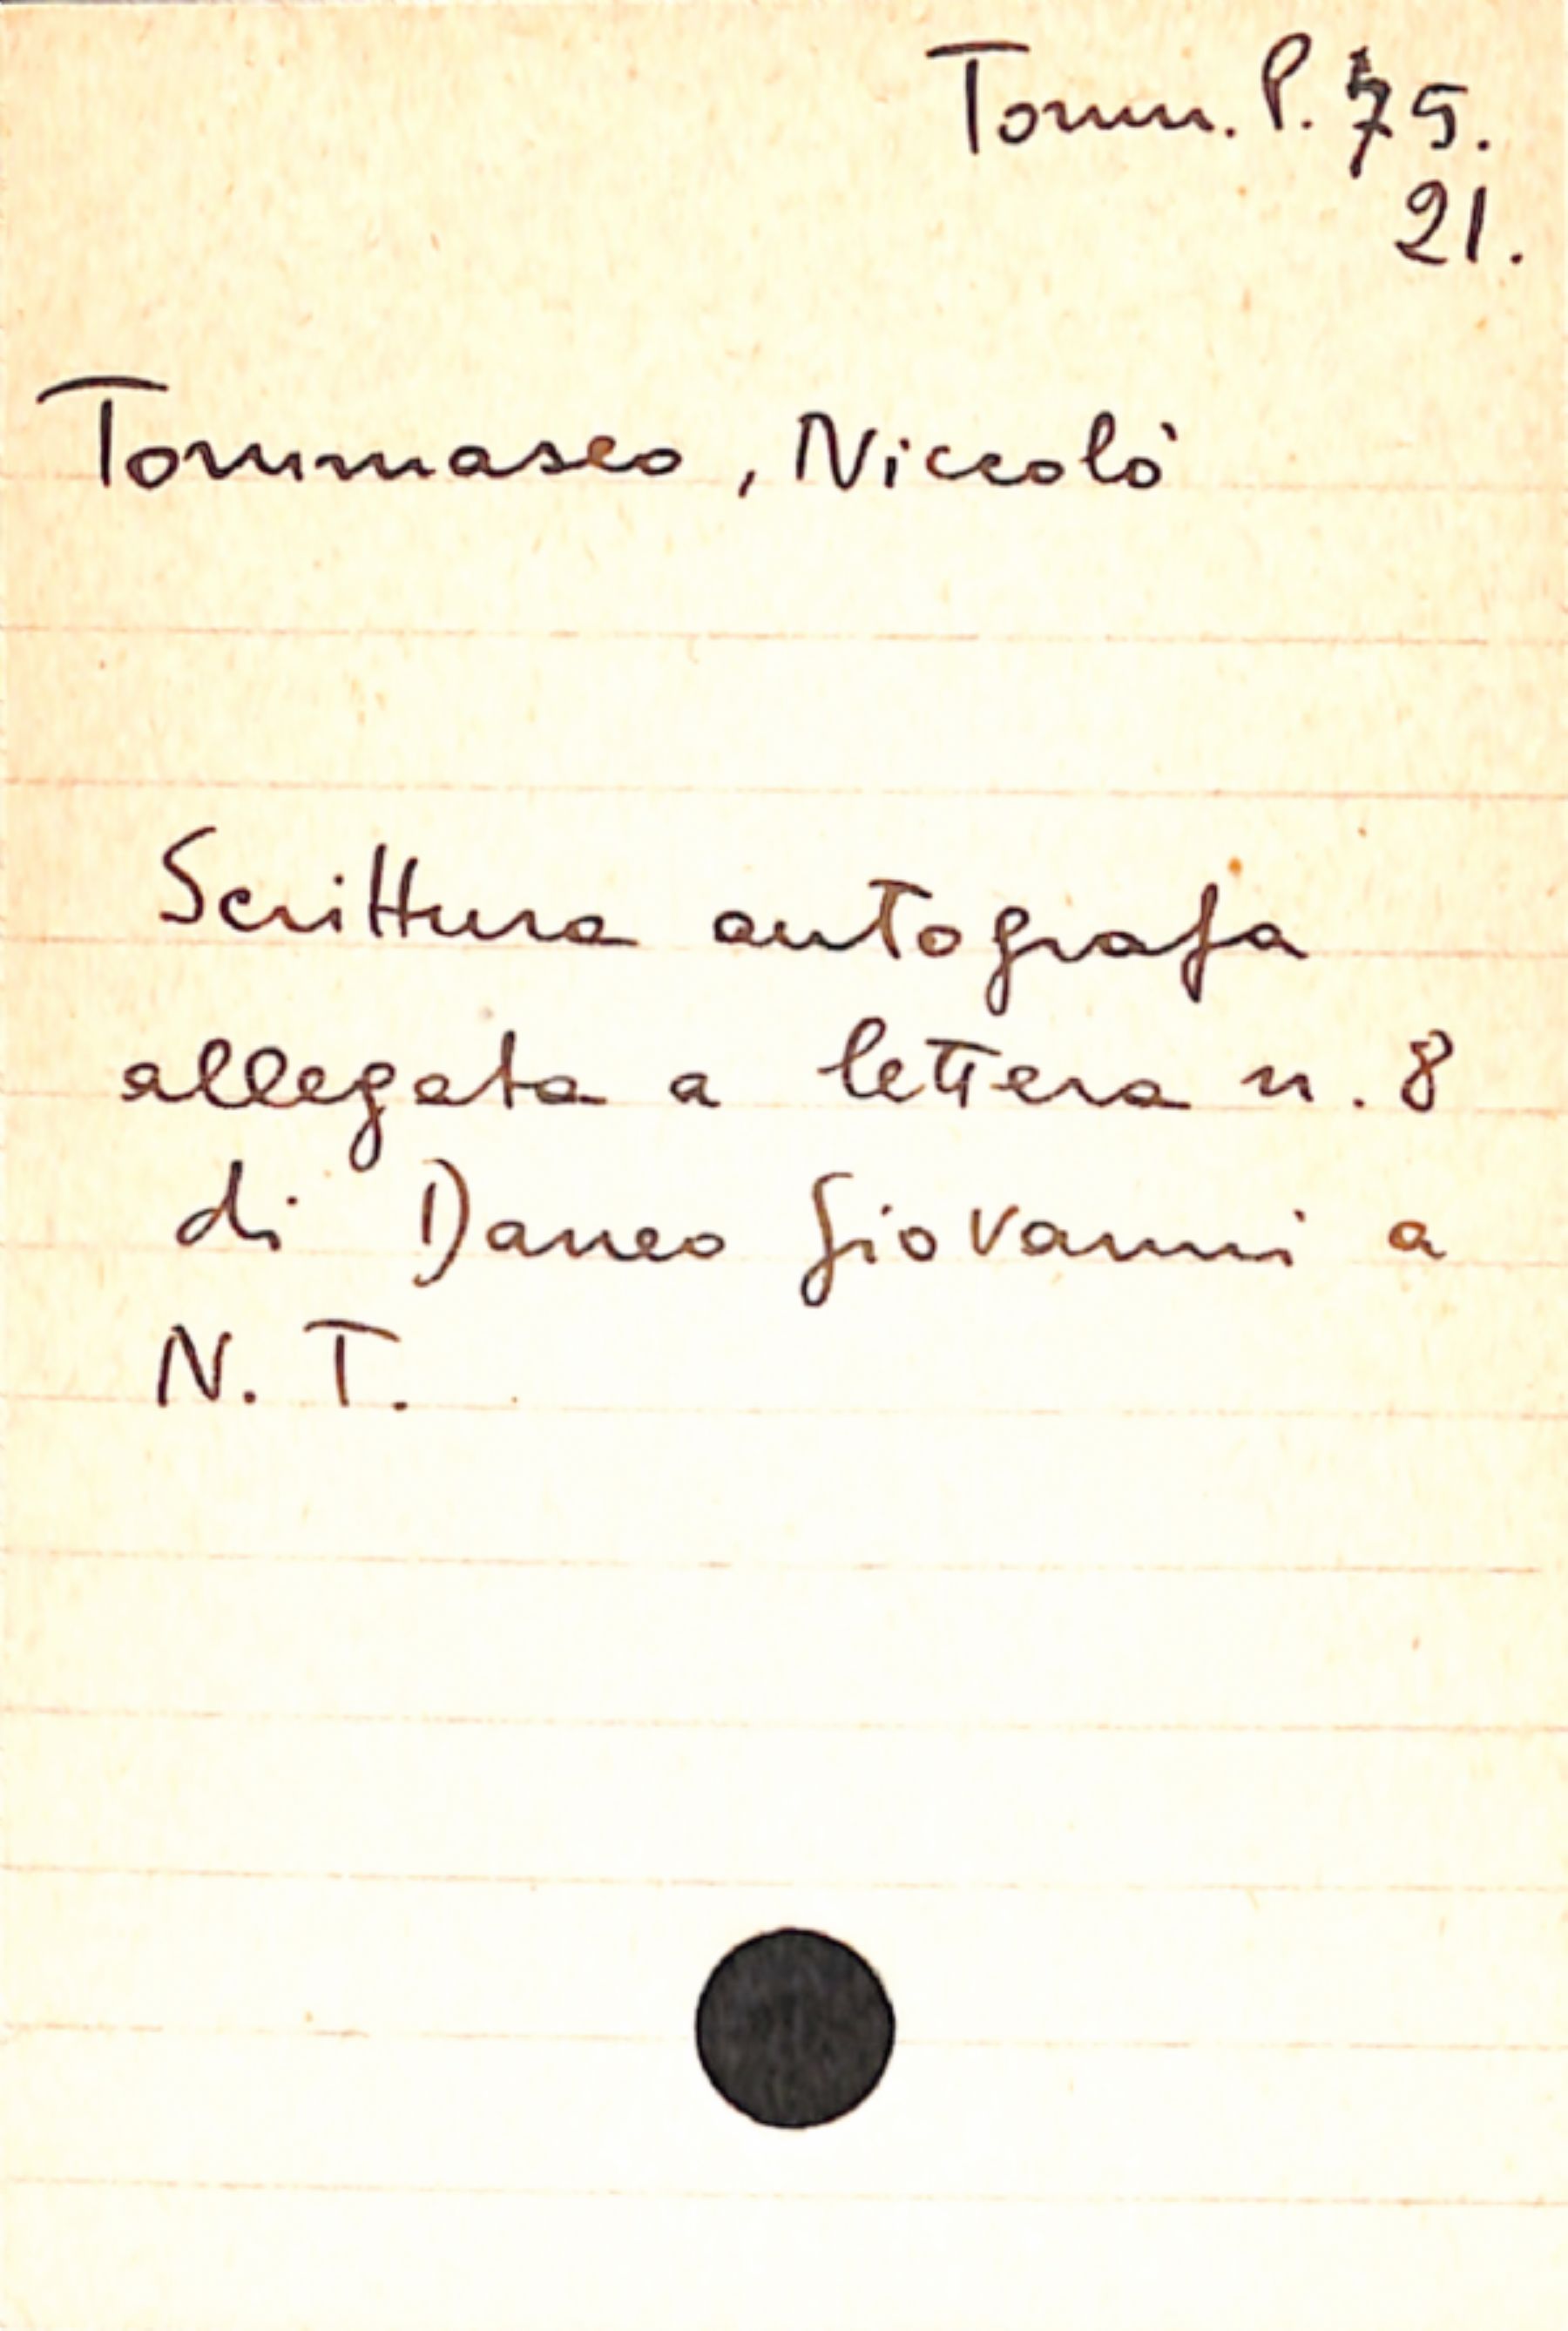 Tomm. P. 75.
21.
Tommaseo, Niccolò
Scrittura autografa
allegata a lettera n. 8
di Daneo Giovanni a
N. T.